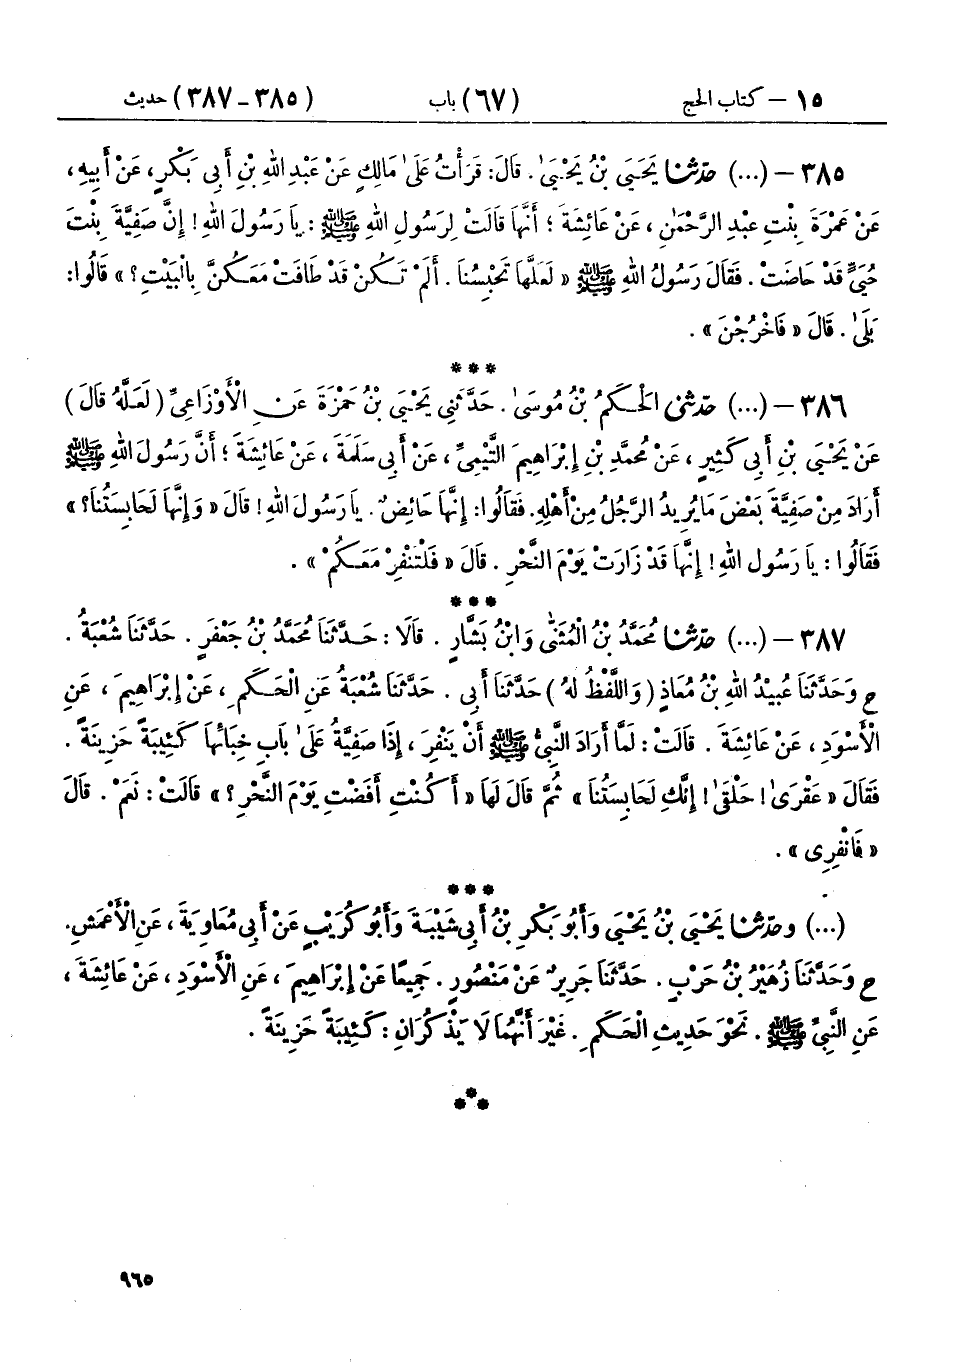 ١٥ – كتاب الحج (٦٧) باب (٣٨٥ - ٣٨٧) حديث
٣٨٥ – (...) حَدَّثَنَا يَحْيَىٰ بْنُ يَحْيَىٰ . قَالَ : قَرَأْتُ عَلَىٰ مَالِكٍ عَنْ عَبْدِ اللهِ بْنِ أَبِي بَكْرٍ ، عَنْ أَبِيهِ ،
عَنْ عَمْرَةَ بِنْتِ عَبْدِ الرَّحْمٰنِ ، عَنْ عَائِشَةَ ؛ أَنَّهَا قَالَتْ لِرَسُولِ اللهِ ﷺ : يَا رَسُولَ اللهِ ! إِنَّ صَفِيَّةَ بِنْتَ
حُيَيٍّ قَدْ حَاضَتْ . فَقَالَ رَسُولُ اللهِ ﷺ « لَعَلَّهَا تَحْبِسُنَا . أَلَمْ تَكُنْ قَدْ طَافَتْ مَعَكُنَّ بِالْبَيْتِ ؟ » قَالُوا :
بَلَىٰ . قَالَ « فَاخْرُجْنَ » .
***
٣٨٦ – (...) حَدَّثَنِي الْحَكَمُ بْنُ مُوسَىٰ . حَدَّثَنِي يَحْيَىٰ بْنُ حَمْزَةَ عَنِ الْأَوْزَاعِيِّ ( لَعَلَّهُ قَالَ )
عَنْ يَحْيَىٰ بْنِ أَبِي كَثِيرٍ ، عَنْ مُحَمَّدِ بْنِ إِبْرَاهِيمَ التَّيْمِيِّ ، عَنْ أَبِي سَلَمَةَ ، عَنْ عَائِشَةَ ؛ أَنَّ رَسُولَ اللهِ ﷺ
أَرَادَ مِنْ صَفِيَّةَ بَعْضَ مَا يُرِيدُ الرَّجُلُ مِنْ أَهْلِهِ . فَقَالُوا : إِنَّهَا حَائِضٌ . يَا رَسُولَ اللهِ ! قَالَ « وَإِنَّهَا لَحَابِسَتُنَا ؟ »
فَقَالُوا : يَا رَسُولَ اللهِ ! إِنَّهَا قَدْ زَارَتْ يَوْمَ النَّحْرِ . قَالَ « فَلْتَنْفِرْ مَعَكُمْ » .
***
٣٨٧ – (...) حَدَّثَنَا مُحَمَّدُ بْنُ الْمُثَنَّىٰ وَابْنُ بَشَّارٍ . قَالَا : حَدَّثَنَا مُحَمَّدُ بْنُ جَعْفَرٍ . حَدَّثَنَا شُعْبَةُ .
ح وَحَدَّثَنَا عُبَيْدُ اللهِ بْنُ مُعَاذٍ ( وَاللَّفْظُ لَهُ ) حَدَّثَنَا أَبِي . حَدَّثَنَا شُعْبَةُ عَنِ الْحَكَمِ ، عَنْ إِبْرَاهِيمَ ، عَنِ
الْأَسْوَدِ ، عَنْ عَائِشَةَ . قَالَتْ : لَمَّا أَرَادَ النَّبِيُّ ﷺ أَنْ يَنْفِرَ ، إِذَا صَفِيَّةُ عَلَىٰ بَابِ خِبَائِهَا كَئِيبَةً حَزِينَةً .
فَقَالَ « عَقْرَىٰ ! حَلْقَىٰ ! إِنَّكِ لَحَابِسَتُنَا » ثُمَّ قَالَ لَهَا « أَكُنْتِ أَفَضْتِ يَوْمَ النَّحْرِ ؟ » قَالَتْ : نَعَمْ . قَالَ
« فَانْفِرِي » .
***
(...) وحَدَّثَنَا يَحْيَىٰ بْنُ يَحْيَىٰ وَأَبُو بَكْرِ بْنُ أَبِي شَيْبَةَ وَأَبُو كُرَيْبٍ عَنْ أَبِي مُعَاوِيَةَ ، عَنِ الْأَعْمَشِ .
ح وَحَدَّثَنَا زُهَيْرُ بْنُ حَرْبٍ . حَدَّثَنَا جَرِيرٌ عَنْ مَنْصُورٍ . جَمِيعًا عَنْ إِبْرَاهِيمَ ، عَنِ الْأَسْوَدِ ، عَنْ عَائِشَةَ ،
عَنِ النَّبِيِّ ﷺ . نَحْوَ حَدِيثِ الْحَكَمِ . غَيْرَ أَنَّهُمَا لَا يَذْكُرَانِ : كَئِيبَةً حَزِينَةً .
***
٩٦٥